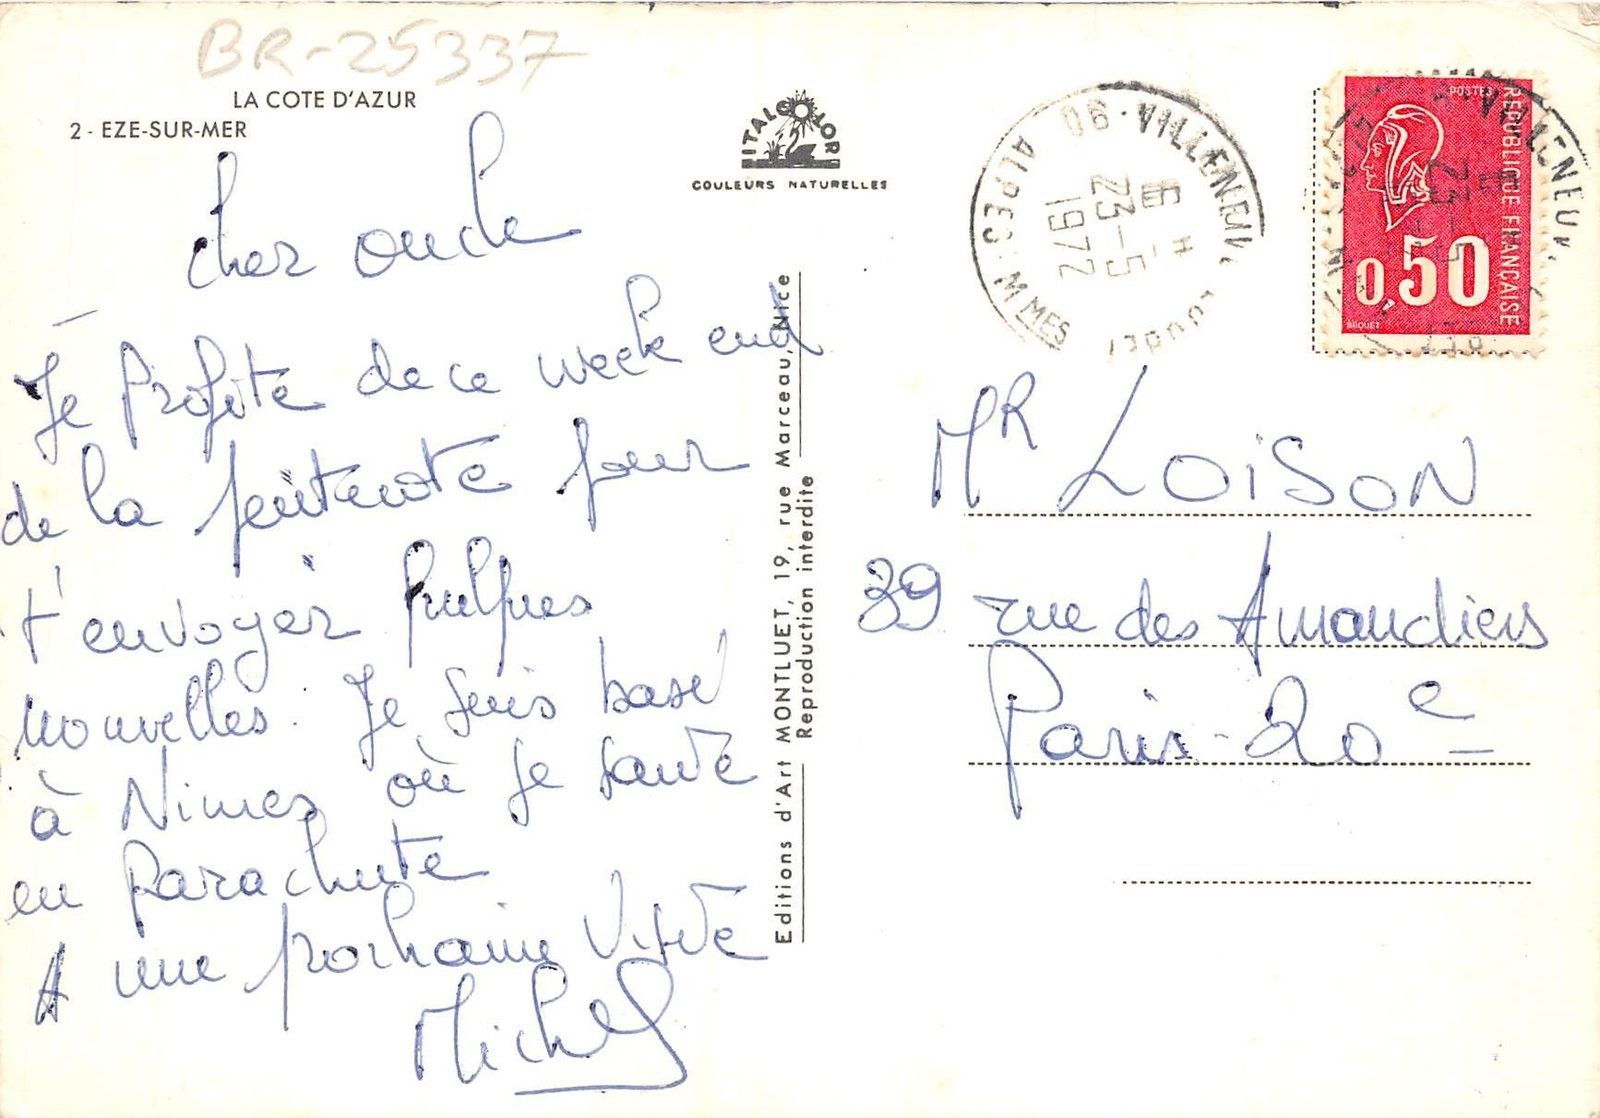 BR-25337
LA COTE D'AZUR
2 - EZE-SUR-MER
ITALCOLOR
COULEURS NATURELLES
Cher oncle
Je profite de ce week end
de la pentecote pour
t'envoyer quelques
nouvelles. Je suis basé
à Nimes où je saute
en parachute
A une prochaine visite
Michel
Editions d'Art MONTLUET, 19, rue Marceau, Nice
Reproduction interdite
06 - VILLENEUVE LOUBET
ALPES-MMES
16 H
23-5
1972
POSTES
RÉPUBLIQUE FRANÇAISE
0,50
BEQUET
VILLENEUV
23-5
Mr LOISON
39 rue des Amandiers
Paris-20e